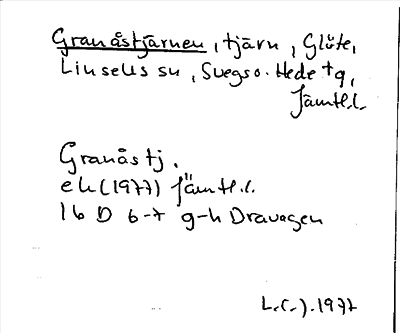 Granåstjärnen, tjärn, Glöte,
Linsells sn, Svegs o. Hede tg,
Jämtl.l.
Granåstj.
ek (1977) Jämtl.l.
16 D 6-7 g-h Dravagen
L.(-).1977